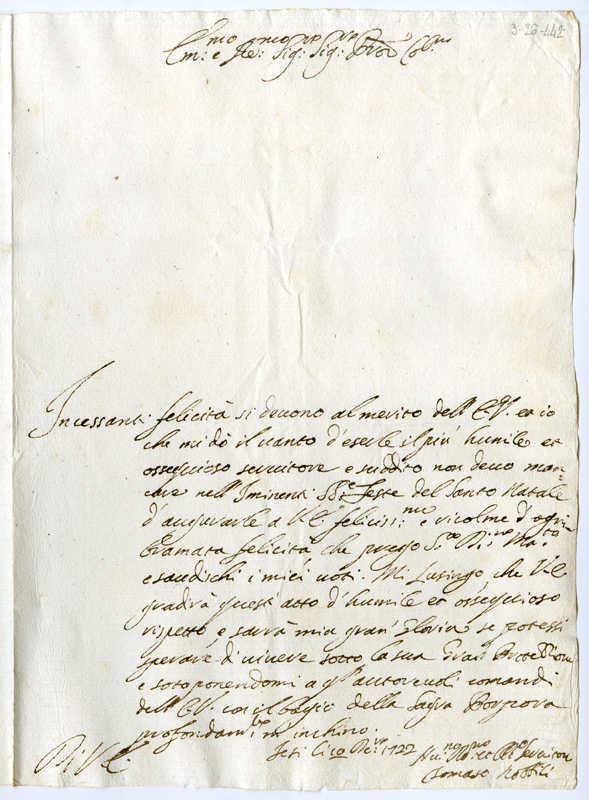 3-26-442
Em:mo e Re:mo Sig: Sig: Pron Col:mo
Incessanti felicità si deuono al merito dell' E.V. et io
che mi dò il uanto d'eserle il più humile et
ossequioso seruitore e suddito non deuo man=
care nell' Iminenti SS:e Feste del Santo Natale
d'augurarle a V.E. felicissi:me e ricolme d'ogni
bramata felicità che prego
esaudischi i miei uoti. Mi Lusingo, che V.E.
gradirà quest' atto d'humile et ossequioso
rispetto e sarrà mia gran' Gloria se potessi
sperare di uiuere sotto la sua Gran' Protettione
e sotoponendomi a gl' autoreuoli comandi
dell' E.V. con il bagio della Sagra Porpora
profondam:te m' inchino.
Di V.E.
Jesi li 1722
Hu:mo et Seruitore
Tomaso Nobili